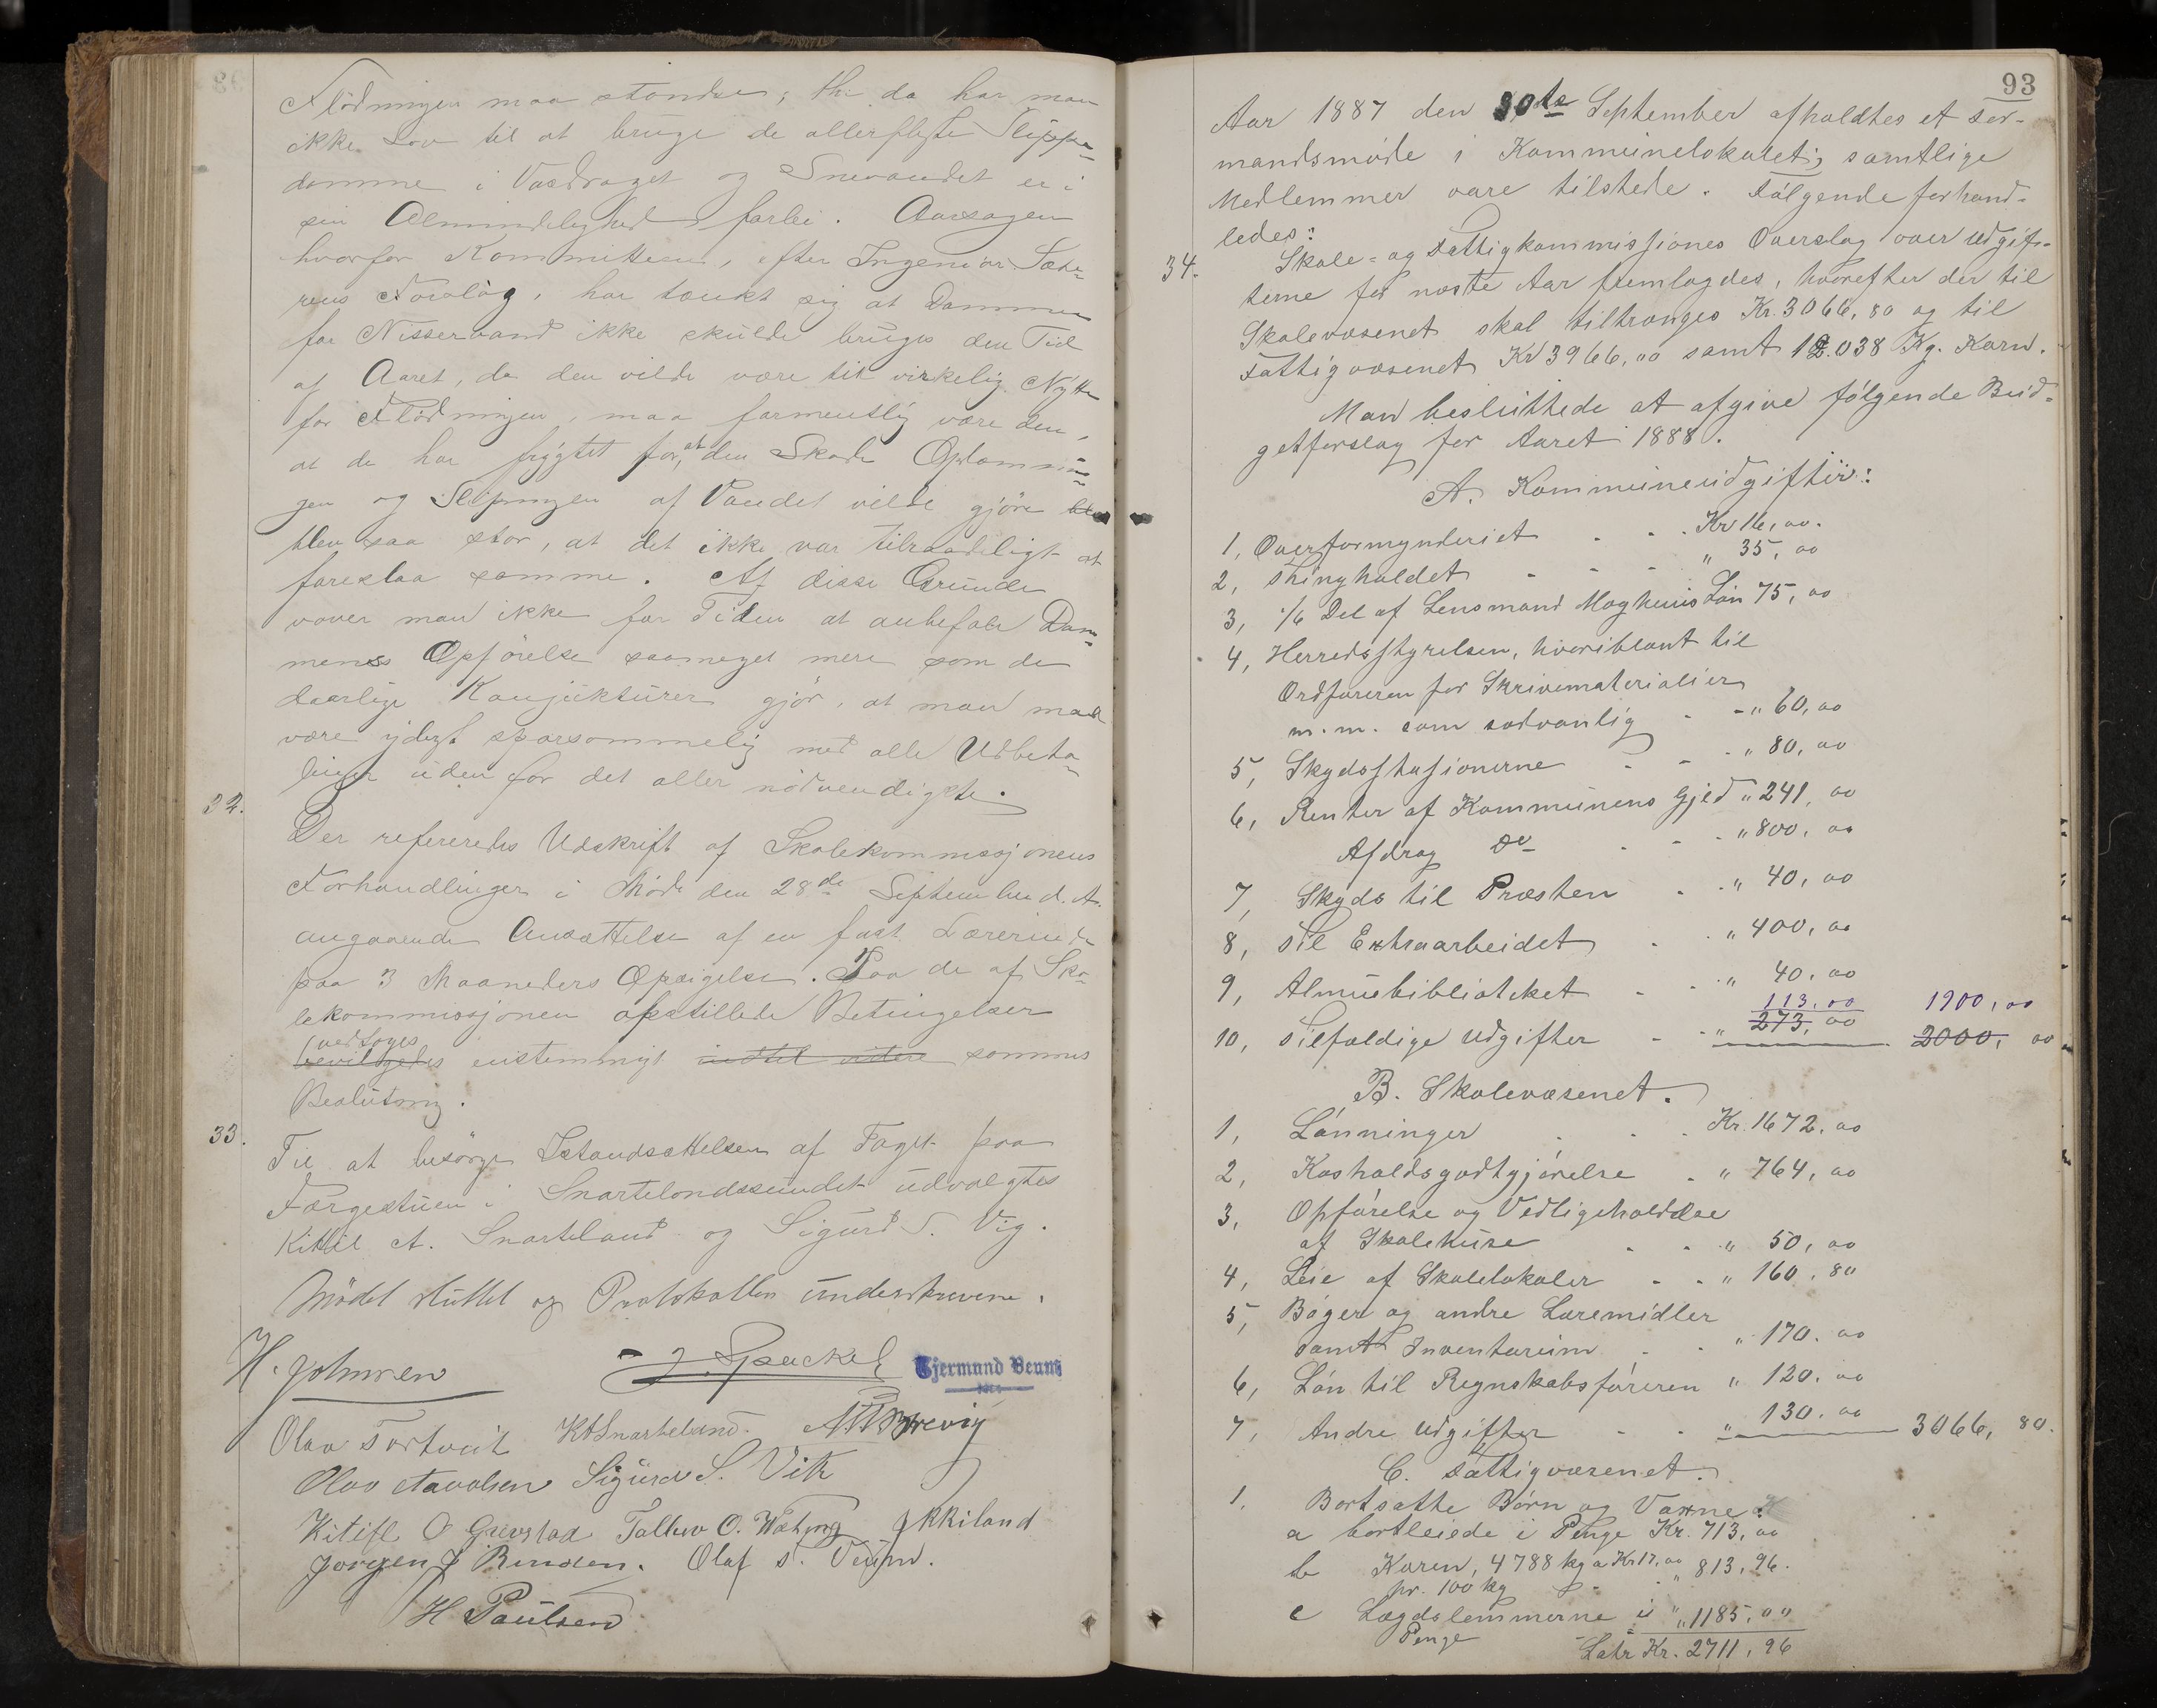 Flødningen maa standse; thi da har man
ikke Lov til at bruge de allerfleste Slippe-
damme i Vasdraget og Snevandet er i
sin Almindelighed forbi. Aarsagen
hvorfor Kommitteen, efter Ingeniør Sæte-
rens Forslag, har tænkt sig at Dammen
for Nisservand ikke skulde bruges den Tid
af Aaret, da den vilde være til virkelig Nytte
for Flødningen, maa formentlig være den,
at de har frygtet for, at den Skade Opdæmnin-
gen og Slipningen af Vandet vilde gjøre
blev saa stor, at det ikke var tilraadeligt at
foreslaa samme. Af disse Grunde
vover man ikke for Tiden at anbefale Dam-
mens Opførelse saameget mere som de
daarlige Konjukturer gjør, at man maa
være yderst sparsommelig med alle Udbeta-
linger uden for det aller nødvendigste.
32.
Der refereredes Udskrift af Skolekommissjonens
Forhandlinger i Møde den 28de September d. A.
angaaende Ansættelse af en fast Lærerinde
paa 3 Maaneders Opsigelse. Paa de af Sko-
lekommissjonen opstillede Betingelser
vedtoges
bevilgedes enstemmigt indtil videre sammes
Beslutning.
33.
Til at besørge Istandsættelsen af Taget paa
Færgestuen i Snartelandssundet udvalgtes
Kittil A. Snarteland og Sigurd S. Vig.
Mødet sluttet og Protokollen underskreven.
H. Johnsen J. Spackel Gjermund Veum
Olav Tortveit KASnarteland.
Olav Aavalsen Sigurd S. Vik
Kitill O Grevstad Tallev O. JKkiland
Jørgen J Rinden. Olaf S. Veum.
H Paulsen
93
Aar 1887 den 30te September afholdtes et For-
mandsmøde i Kommunelokalet; samtlige
Medlemmer vare tilstede. Følgende forhand-
ledes:
34.
Skole- og Fattigkommissiones Overslag over Udgif-
terne for næste Aar fremlagdes, hvorefter der til
Skolevæsenet skal tiltrænges Kr. 3066,80 og til
Fattigvæsenet Kr 3966,00 samt 12.038 Kg. Korn.
Man besluttede at afgive følgende Bud-
getforslag for Aaret 1888.
A. Kommuneudgifter:
1, Overformynderiet - - Kr 16,00.
2, Thingholdet - - - " 35,00
3, 1/6 Del af Lensmand Moghuus Løn 75,00
4, Herredsstyrelsen, hvoriblant til
Ordføreren for Skrivematerialier
m.m. som sædvanlig - - " 60,00
5, Skydsstasionerne - - - " 80,00
6, Renter af Kommunens Gjed " 241,00
Afdrag Do - - - " 800,00
7, Skyds til Præsten - - " 40,00
8, Til Extraarbeidet - - " 400,00
9, Almuebiblioteket - - " 40,00
113,00 1900,00
10, Tilfældige Udgifter - - " 273,00 2000,00
B. Skolevæsenet.
1, Lønninger - - - Kr. 1672,00
2, Kosholdsgodtgjørelse - " 764,00
3, Opførelse og Vedligeholdelse
af Skolehuse - - " 50,00
4, Leie af Skolelokaler - - " 160,80
5, Bøger og andre Læremidler
samt Inventarium - - " 170.00
6, Løn til Regnskabsføreren " 120.00
7, Andre Udgifter - - " 130.00 3066,80.
C. Fattigvæsenet.
1. Bortsatte Børn og Voxne:
a bortleiede i Penge Kr. 713,00
b Koren, 4788 kg a Kr 17,00 " 813,96.
pr. 100 kg
c Lægdslemmerne i " 1185,00
Penge
Latr Kr. 2711,96